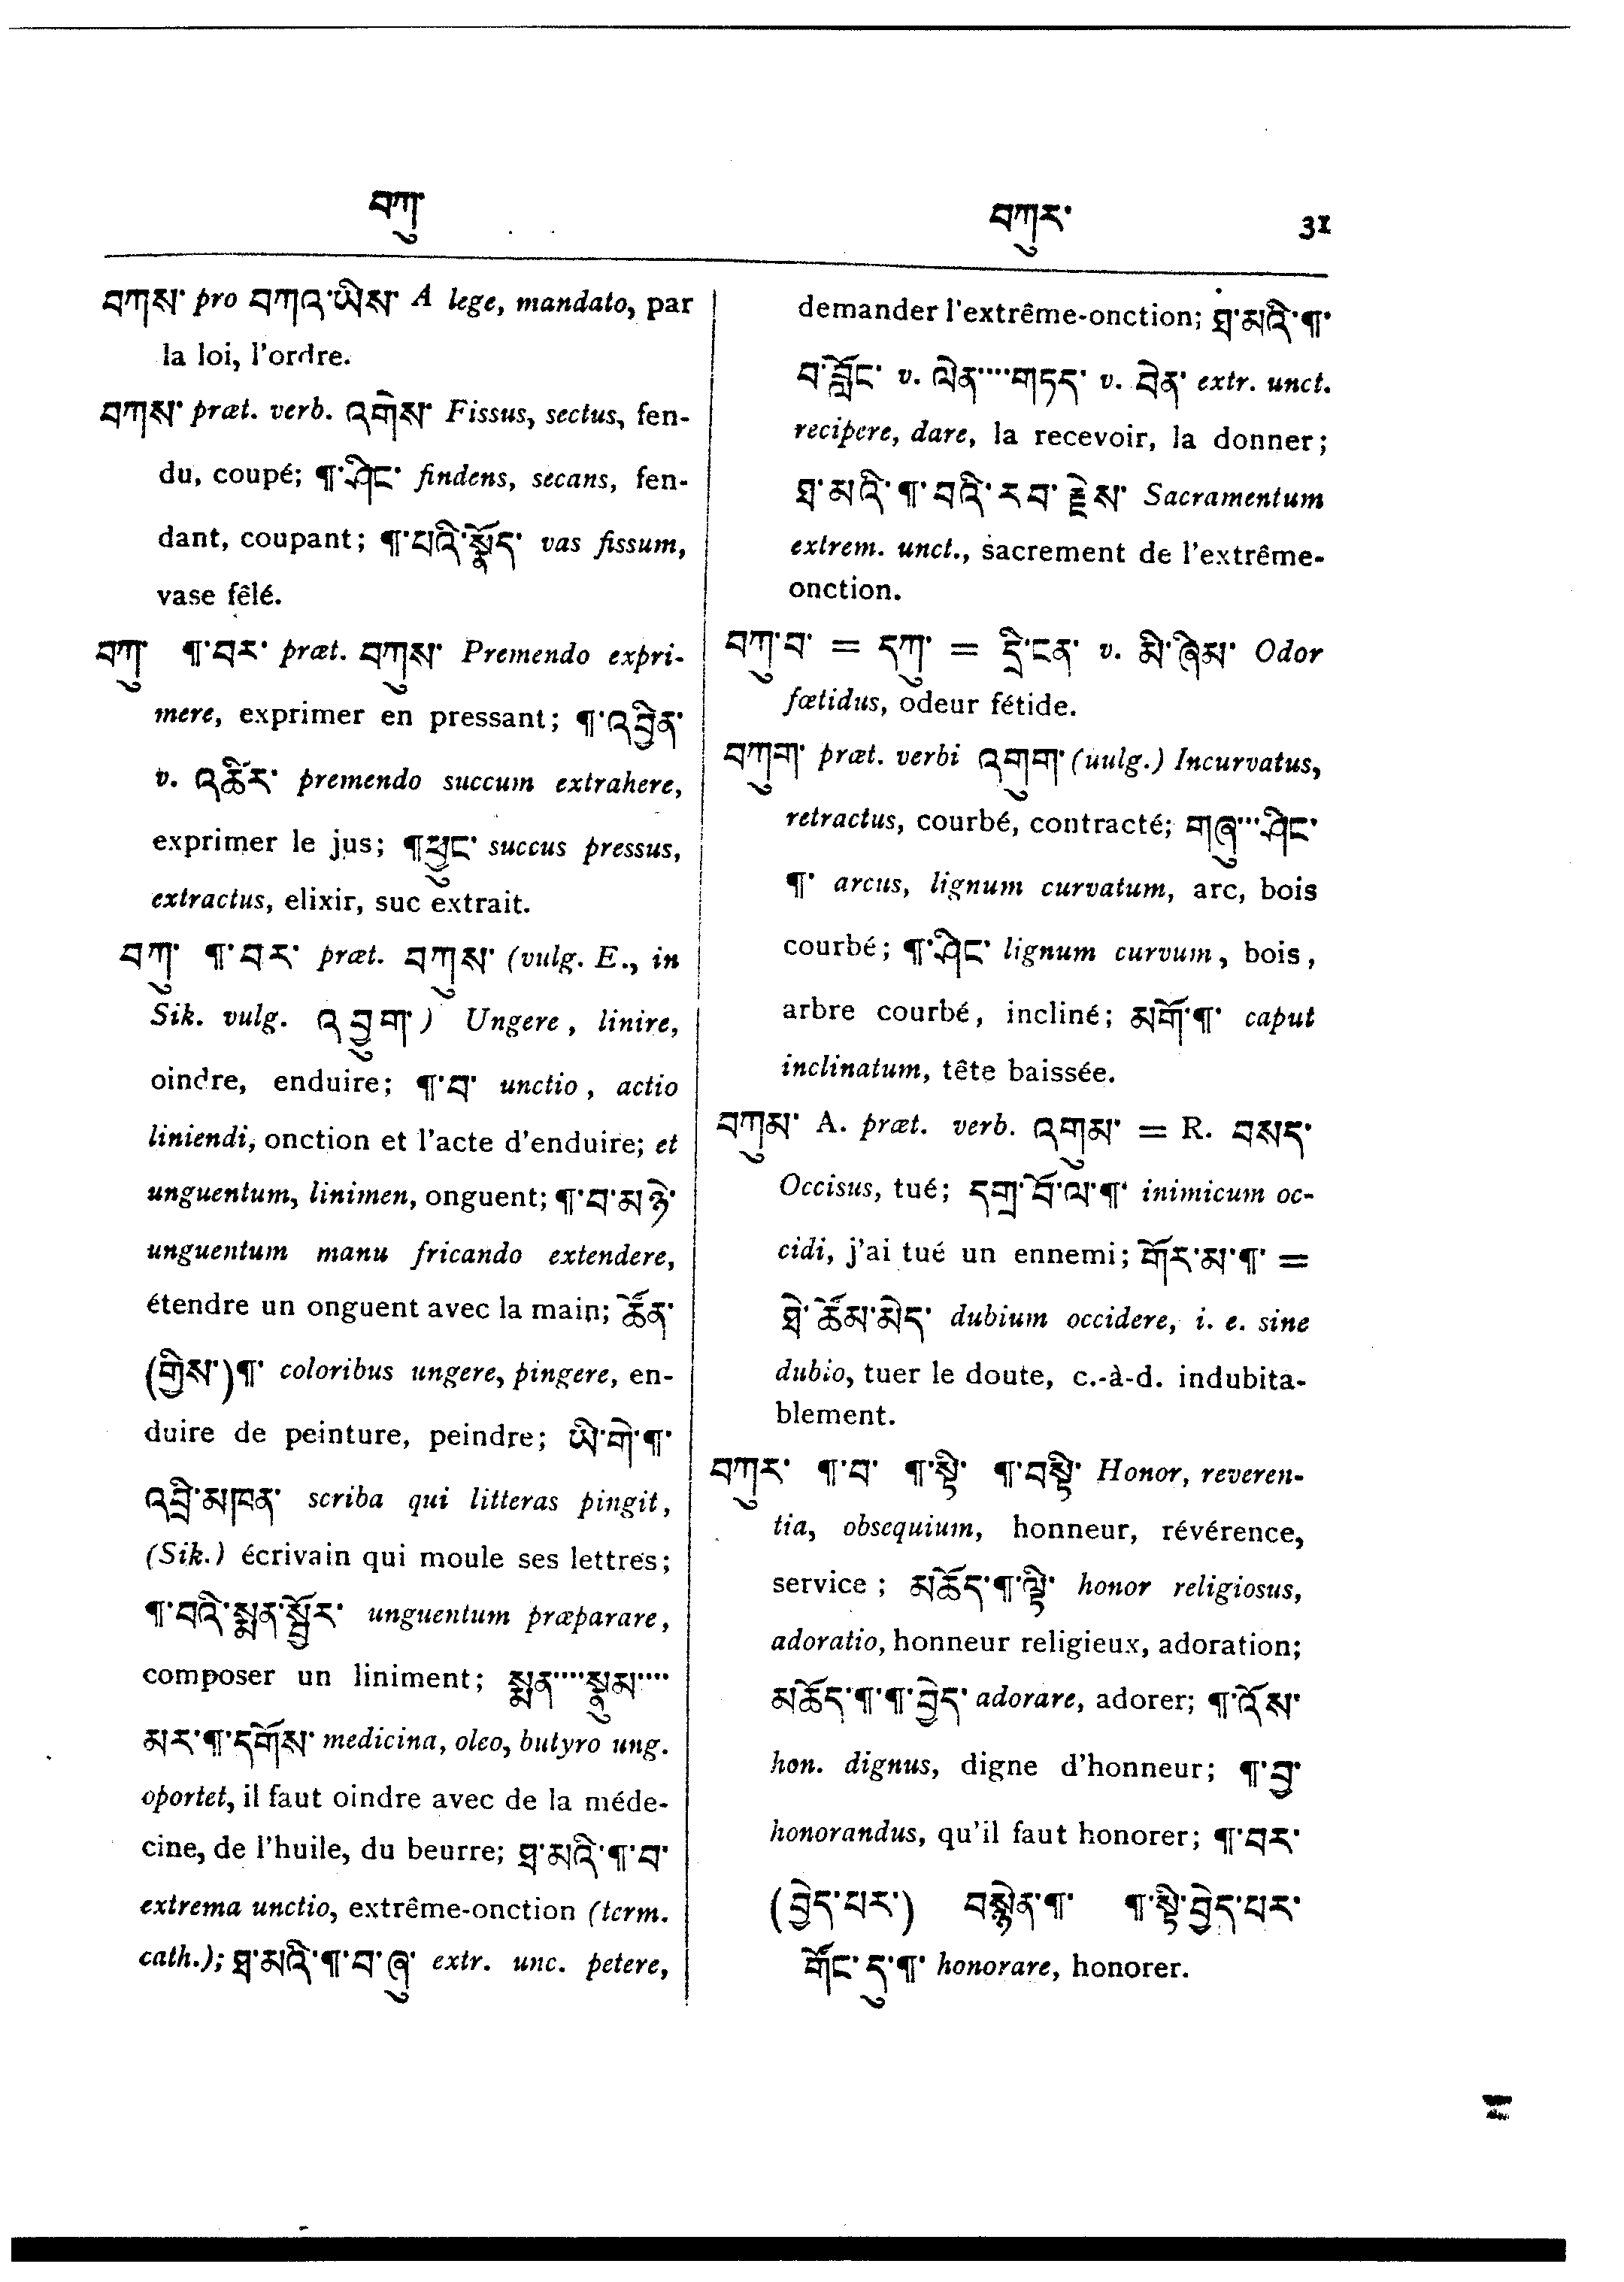 བཀུ་
བཀུར་ 31
བཀས་ pro བཀའ་ཡིས་ A lege, mandato, par
la loi, l'ordre.
བཀས་ præt. verb. འགེས་ Fissus, sectus, fen-
du, coupé; ¶་ཤིང་ findens, secans, fen-
dant, coupant; ¶་པའི་སྣོད་ vas fissum,
vase fêlé.
བཀུ་ ¶་བར་ præt. བཀུས་ Premendo expri-
mere, exprimer en pressant; ¶་འབྱིན་
v. འཚིར་ premendo succum extrahere,
exprimer le jus; ¶ཕྱུང་ succus pressus,
extractus, elixir, suc extrait.
བཀུ་ ¶་བར་ præt. བཀུས་ (vulg. E., in
Sik. vulg. འབྱུག་) Ungere, linire,
oindre, enduire; ¶་བ་ unctio, actio
liniendi, onction et l'acte d'enduire; et
unguentum, linimen, onguent; ¶་བ་མཉེ་
unguentum manu fricando extendere,
étendre un onguent avec la main; ཚོན་
(གྱིས་)¶་ coloribus ungere, pingere, en-
duire de peinture, peindre; ཡི་གེ་¶་
འབྲི་མཁན་ scriba qui litteras pingit,
(Sik.) écrivain qui moule ses lettres;
¶་བའི་སྨན་སྦྱོར་ unguentum præparare,
composer un liniment; སྨན་····སྣུམ་····
མར་¶་དགོས་ medicina, oleo, butyro ung.
oportet, il faut oindre avec de la méde-
cine, de l'huile, du beurre; ཐ་མའི་¶་བ་
extrema unctio, extrême-onction (term.
cath.); ཐ་མའི་¶་བ་ཞུ་ extr. unc. petere,
demander l'extrême-onction; ཐ་མའི་¶་
བ་བློང་ v. ལེན་····གཏད་ v. བྲེན་ extr. unct.
recipere, dare, la recevoir, la donner;
ཐ་མའི་¶་བའི་རབ་རྗེས་ Sacramentum
extrem. unct., sacrement de l'extrême-
onction.
བཀུ་བ་ = དཀུ་ = དྲི་ངན་ v. མི་ཞིམ་ Odor
fœtidus, odeur fétide.
བཀུག་ præt. verbi འགུག་ (uulg.) Incurvatus,
retractus, courbé, contracté; གཞུ་···ཤིང་
¶་ arcus, lignum curvatum, arc, bois
courbé; ¶་ཤིང་ lignum curvum, bois,
arbre courbé, incliné; མགོ་¶་ caput
inclinatum, tête baissée.
བཀུམ་ A. præt. verb. འགུམ་ = R. བསད་
Occisus, tué; དགྲ་བོ་ལ་¶་ inimicum oc-
cidi, j'ai tué un ennemi; གོར་མ་¶་ =
ཐེ་ཚོམ་མེད་ dubium occidere, i. e. sine
dubio, tuer le doute, c.-à-d. indubita-
blement.
བཀུར་ ¶་བ་ ¶་སྟི་ ¶་བསྟི་ Honor, reveren-
tia, obsequium, honneur, révérence,
service; མཆོད་¶་ལྟི་ honor religiosus,
adoratio, honneur religieux, adoration;
མཆོད་¶་¶་བྱེད་ adorare, adorer; ¶་འོས་
hon. dignus, digne d'honneur; ¶་བྱ་
honorandus, qu'il faut honorer; ¶་བར་
(བྱེད་པར་) བསྙེན་¶་ ¶་སྟི་བྱེད་པར་
གོང་དུ་¶་ honorare, honorer.